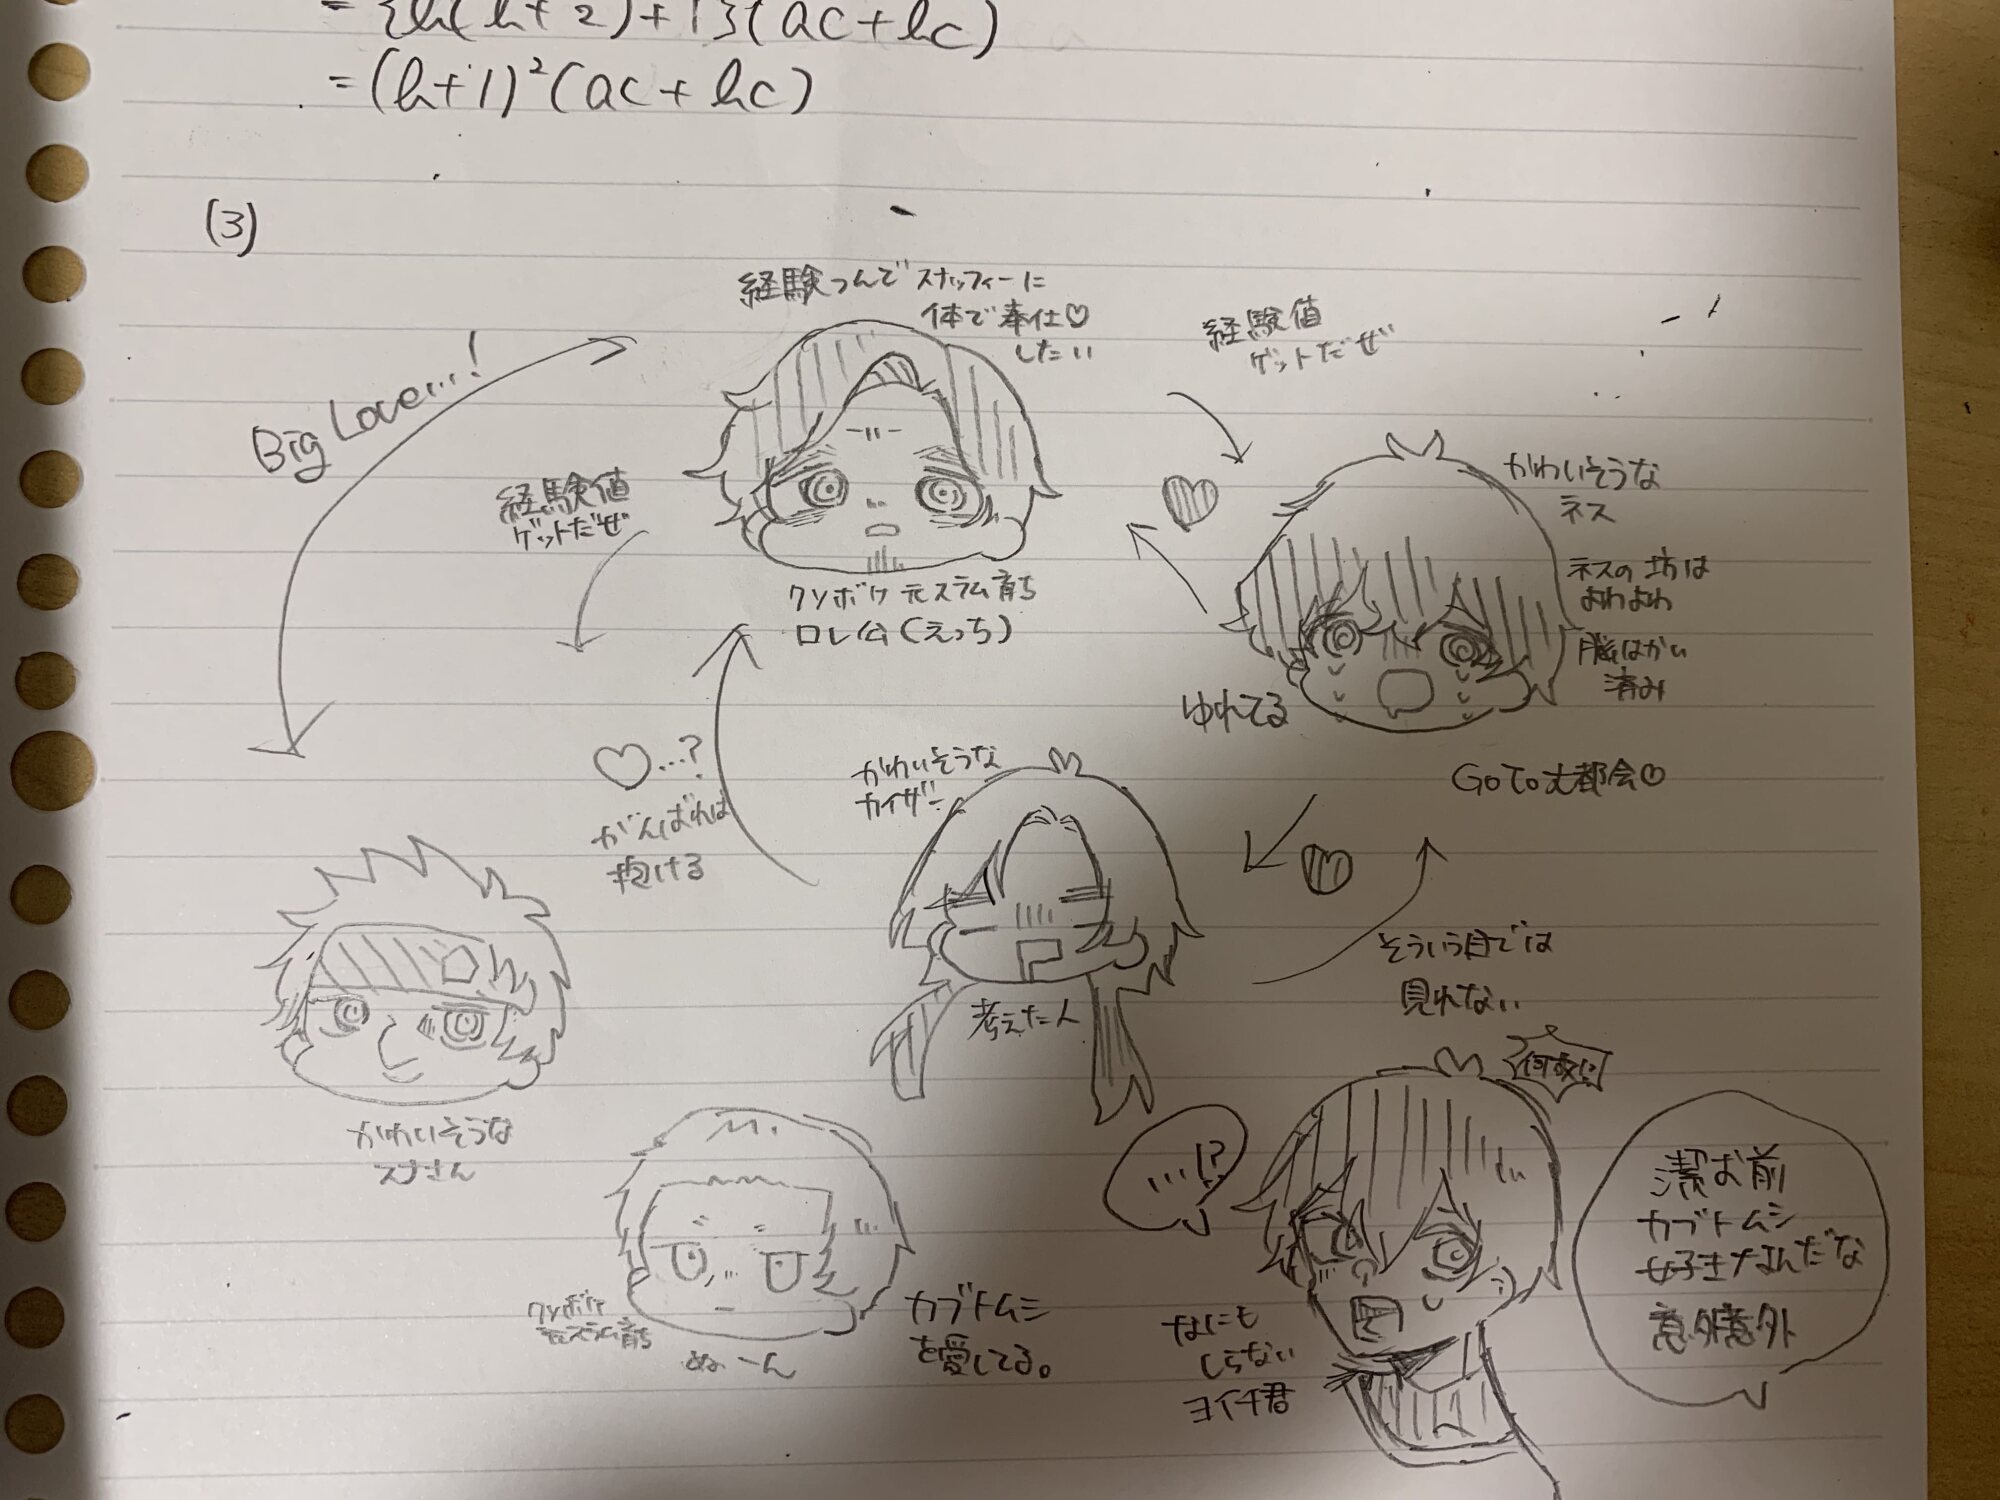 = {b(b+2)+1}(ac+bc)
= (b+1)²(ac+bc)
(3)
経験つんでスナッフィーに
体で奉仕♡
したい
経験値
ゲットだぜ
Big Love...!
経験値
ゲットだぜ
かわいそうな
ネス
ネスの坊は
よわよわ
脳はかい
済み
クソボケ元スラム育ち
ロレ公(えっち)
ゆれてる
GoTo大都会♡
♡...?
がんばれば
抱ける
かわいそうな
カイザー
そういう目では
見れない
考えた人
かわいそうな
スナさん
何故!?
...!?
潔お前
カブトムシ
好きなんだな
意外意外
クソボケ
元スラム育ち
ぬーん
カブトムシ
を愛してる。
なにも
しらない
ヨイチ君